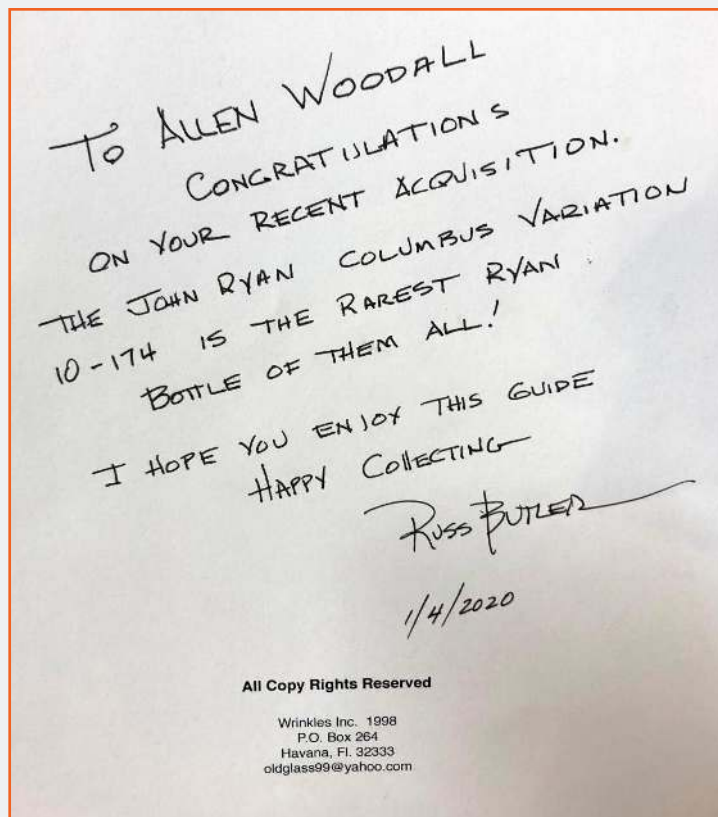 TO ALLEN WOODALL
CONGRATULATIONS
ON YOUR RECENT ACQUISITION.
THE JOHN RYAN COLUMBUS VARIATION
10-174 IS THE RAREST RYAN
BOTTLE OF THEM ALL!
I HOPE YOU ENJOY THIS GUIDE
HAPPY COLLECTING
RUSS BUTLER
1/4/2020
All Copy Rights Reserved
Wrinkles Inc. 1998
P.O. Box 264
Havana, Fl. 32333
oldglass99@yahoo.com